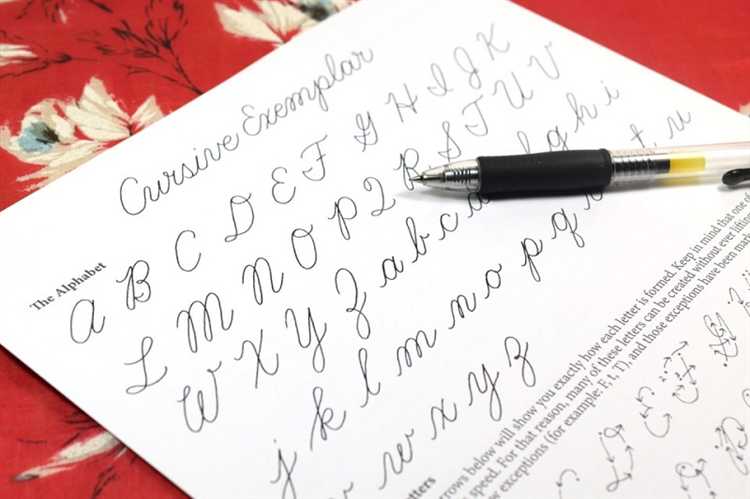 Cursive Exemplar
The Alphabet
A B C D E F G H I J K
L M N O P Q R S T U V
W X Y Z a b c g h i
j k l m n o p q t, u
w x y z
below will show you exactly how each letter is formed. Keep in mind that one of
speed. For that reason, many of these letters can be created without ever lifting
exceptions (for example: F, t, T), and those exceptions have been